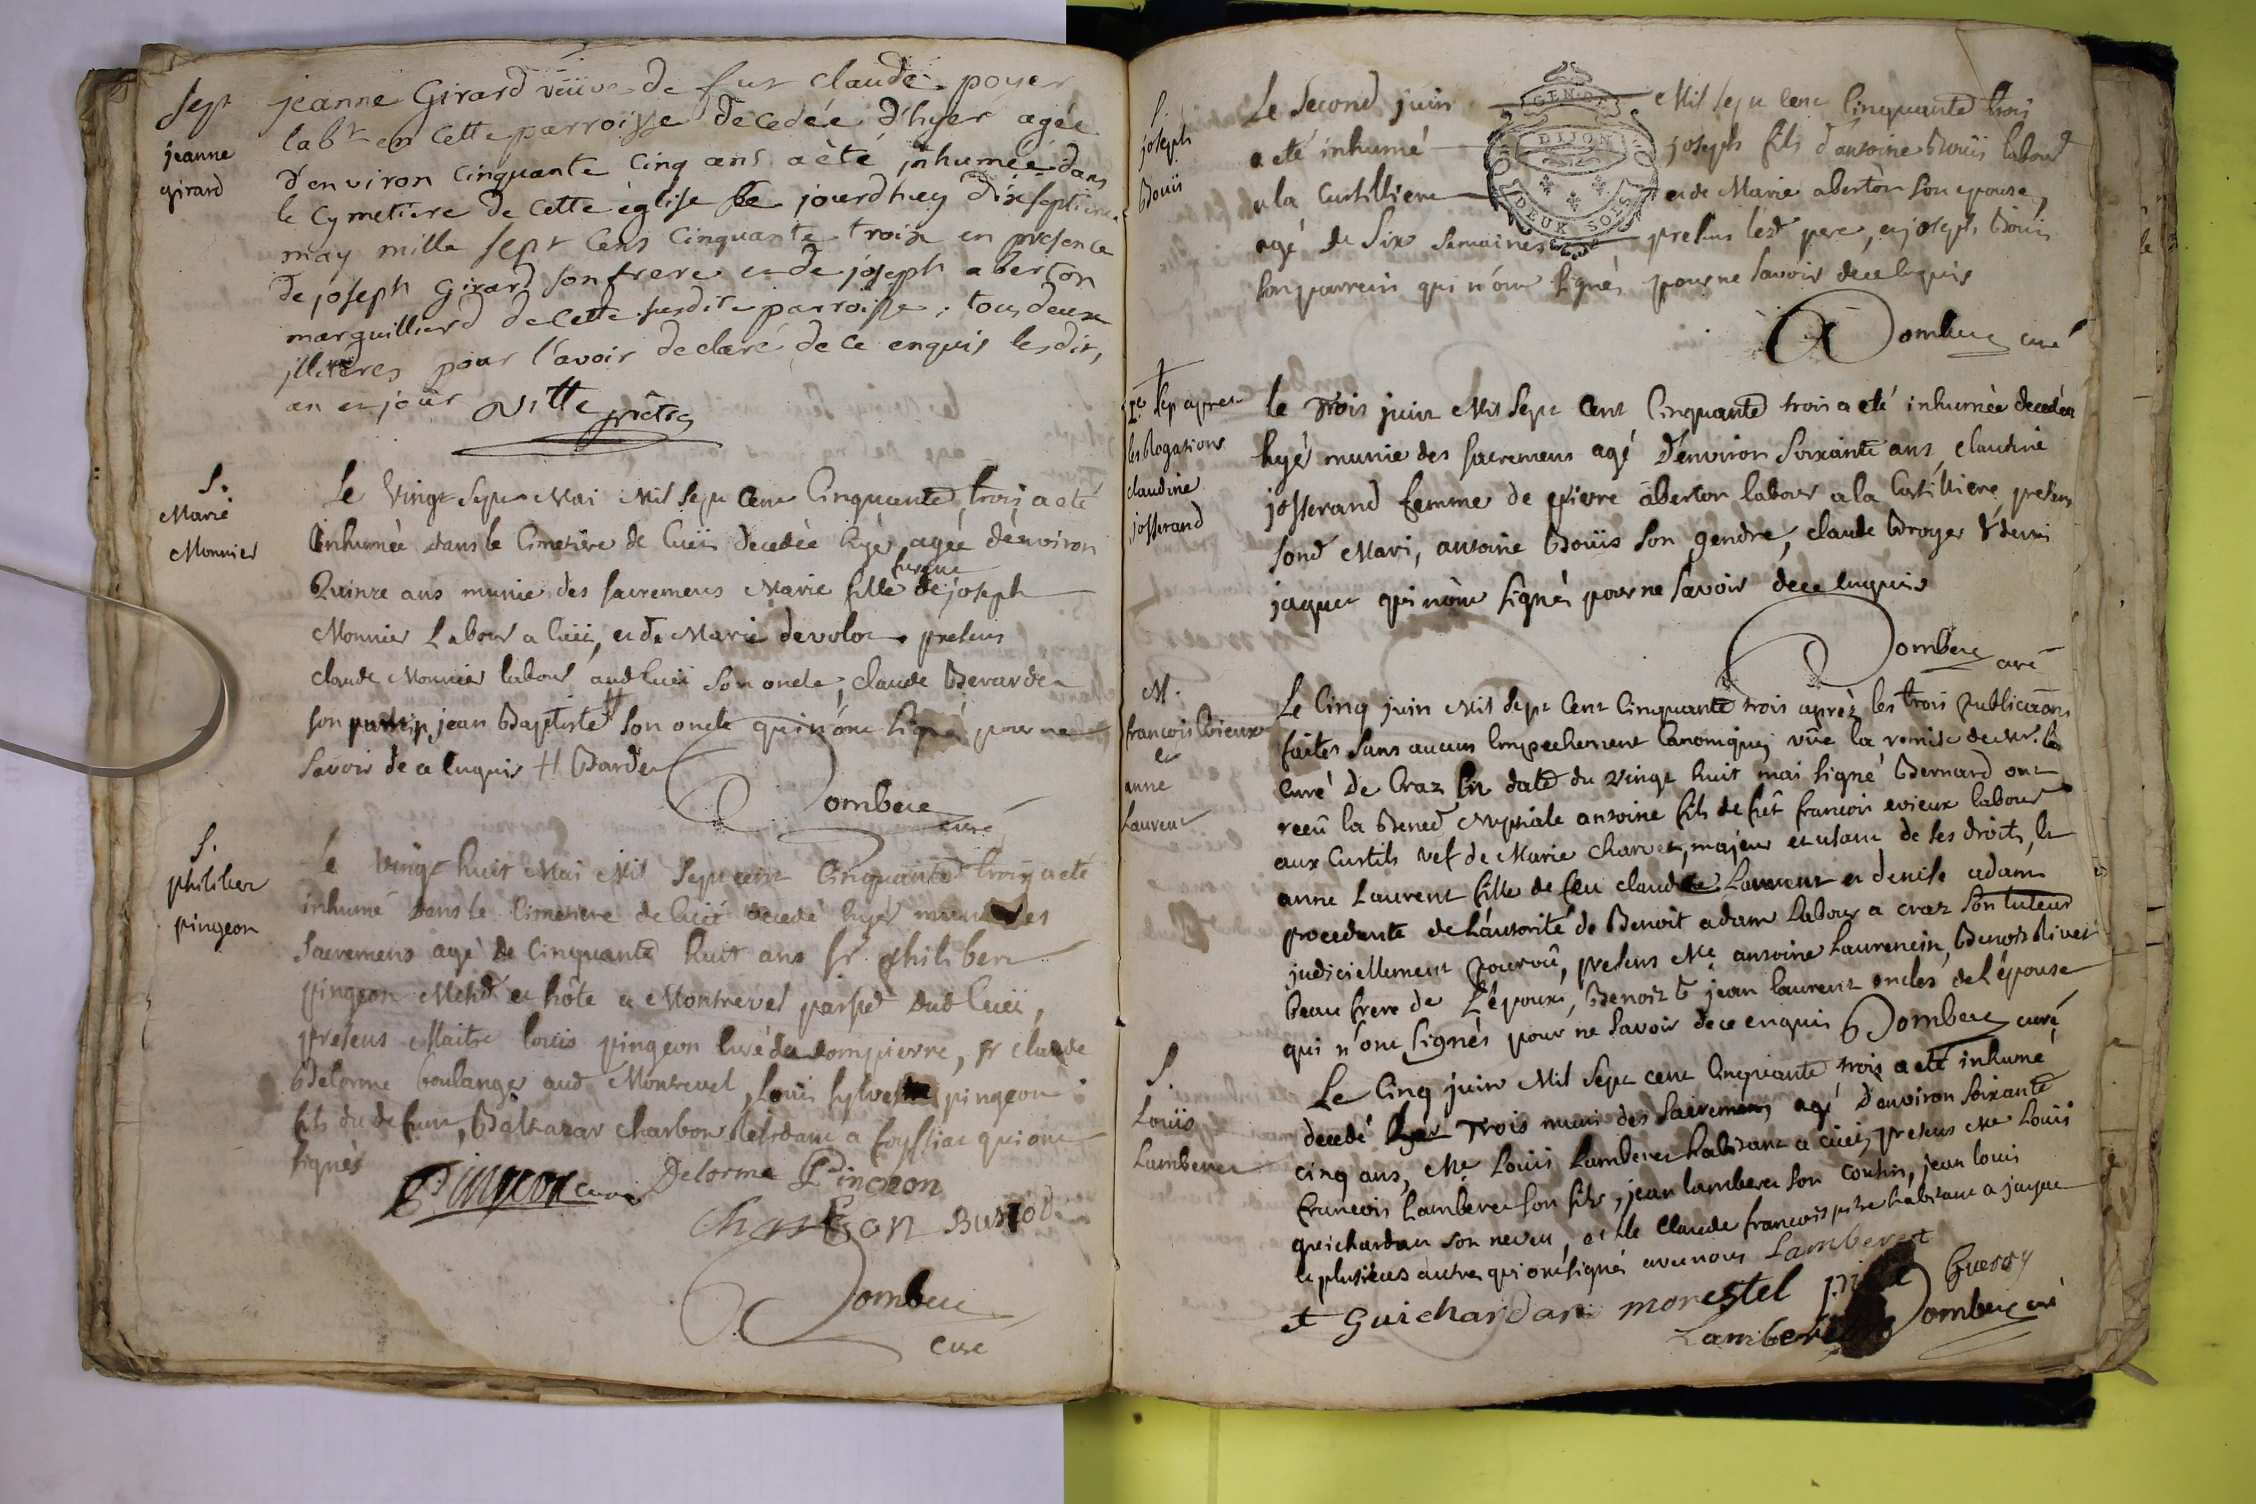 sept
jeanne
girard
jeanne Girard veüve de fut claude poyer
labr en cette parroisse decedée d'hyer agée
d'environ cinquante cinq ans a èté jnhumée dans
le cymetiere de cette église le jourdhuy dixseptieme
may mille sept cens cinquante troix en présence
de joseph Girard son frere et de joseph aberton
marguillierd de cette susdite parroisse, tous deux
jlliteres pour l'avoir declaré de ce enquis lesdits,
an et jour Vitte prêtre
S.
Marie
Monnier
Le Vingt Sept Mai Mil Sept Cent Cinquante trois a eté
inhumée dans le Cimetière de Cuëi decedée hyer agée d'environ
furent
Quinze ans munie des sacremens Marie fille de joseph
Monnier Labour a Cuëi, et de Marie devolot presens
claude Monnier labour aud Cuëi son oncle, claude Berardet
son parrain, jean Baptiste H son oncle qui n'ont signé pour ne
savoir de ce enquis H Bardet
Dombere
curé
S.
philiber
pingeon
Le Vingt huit Mai Mil Sept cent Cinquante trois a eté
inhumé dans le Cimetiere de Cuëi decedé hyer muni des
Sacremens agé de Cinquante huit ans Sr philibert
pingeon Mchd et hôte a Montrevel parsse dud Cuëi,
presens Maitre loüis pingeon Curé de dompierre, sr claude
Delorme boulanger aud Montrevel, Louis sylvestre pingeon
fils du defunt, Baltazar charbon Residant a foyssiat qui ont
signés
Pingeon curé Delorme Pingeon
Charbon
Dombere
curé
S.
joseph
Boüis
Le Second juin Mil sept cent Cinquante trois
a eté inhumé joseph fils d'antoine Boüis labour
a la Curtilliere et de Marie aberton son epouse,
agé de Six Semaines presens led pere, et joseph Boüis
son parrein qui n'ont signés pour ne savoir de ce enquis
GEN DE
DIJON
DEUX SOLS
Dombere curé
1er sep apres
les Rogations
claudine
josserand
le trois juin Mil Sept Cent Cinquante trois a eté inhumée decedée
hyer munie des sacremens agé d'environ soixante ans claudine
josserand femme de pierre aberton labour a la Curtilliere presens
sond Mari, antoine Boüis son gendre, claude Broyer & denis
jaquet qui n'ont signés pour ne savoir de ce enquis
Dombere
curé
M.
francois Evieux
et
anne
Laurent
Le Cinq juin Mil Sept Cent Cinquante trois après les trois publications
faites sans aucun Empechement Canonique, vüe la remise de Mr. le
curé de Craz en date du vingt huit mai signé Bernard ont
reçû la Bened Nuptiale antoine fils de fût francois evieux labour
aux Curtils vef de Marie charvet, majeur et usant de ses droits, et
anne Laurent fille de feu claude Laurent et denise adam
procedante de L'autorité de Benoit adam Labour a craz son tuteur
judiciellement pourvû, presens Me antoine Laurencin, Benoit
beau frere de L'époux, Benoit & jean laurent oncles de l'épouse
qui n'ont signés pour ne savoir de ce enquis Dombere curé
S.
Loüis
Lamberet
Le Cinq juin Mil Sept cent Cinquante trois a eté inhumé
decedé le trois muni des Sacremens agé d'environ soixante
cinq ans, Me Loüis Lamberet habitant a cuëi, presens Me Loüis
francois Lamberet son fils, jean lamberet son cousin, jean louis
guichardan son neveu, et Me claude francois pitre habitant a jayat
et plusieurs autres qui ont signés avec nous Lamberet
et Guichardan morestel Guerry
Lamberet Dombere curé